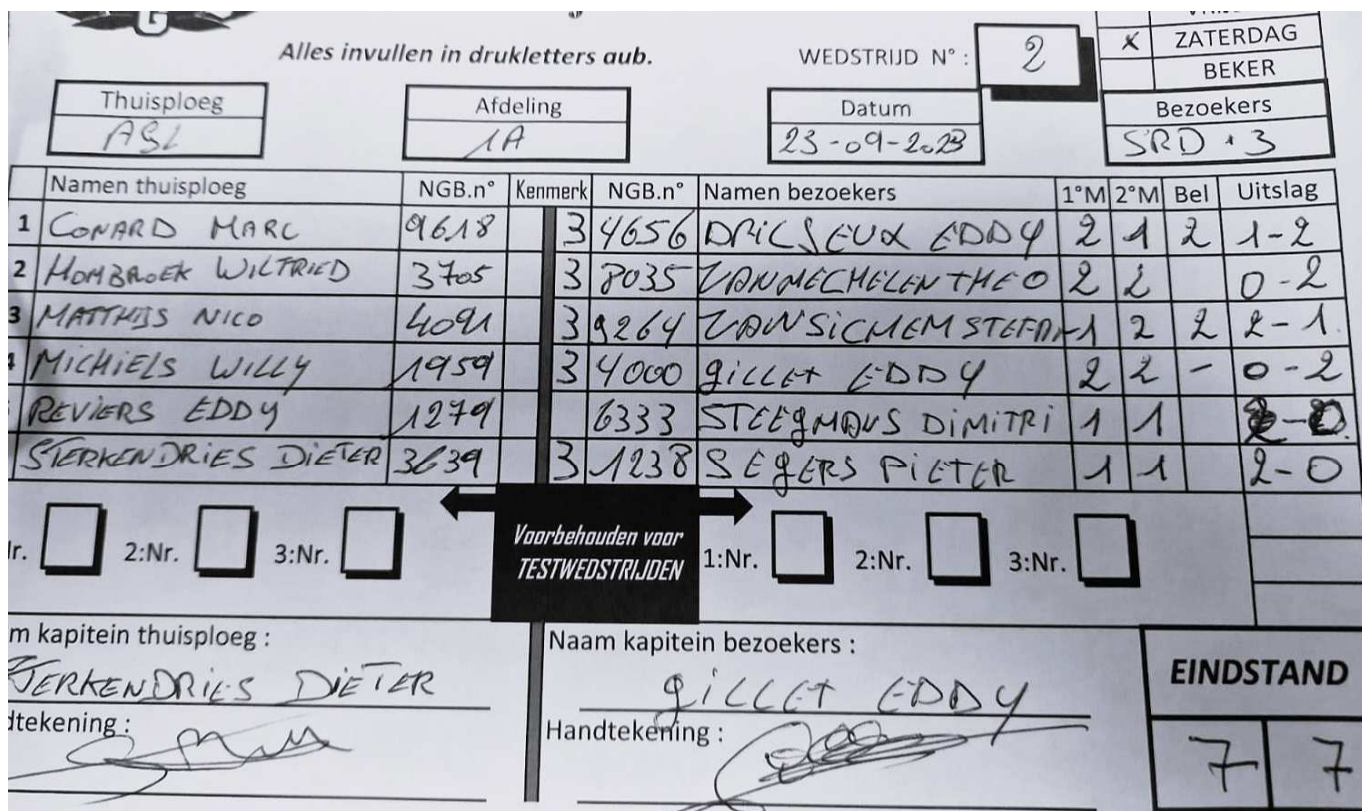 G
Alles invullen in drukletters aub.
WEDSTRIJD N° : 2
X ZATERDAG
BEKER
Thuisploeg Afdeling Datum Bezoekers
ASL 1A 23-09-2023 SRD + 3
Namen thuisploeg NGB.n° Kenmerk NGB.n° Namen bezoekers 1°M 2°M Bel Uitslag
1 CONARD MARC 9618 3 4656 DRICSEUX EDDY 2 1 2 1-2
2 HOMBROEK WILFRIED 3705 3 8035 VANMECHELEN THEO 2 2 0-2
3 MATTHIJS NICO 4091 3 9264 VANSICHEM STEFAN 1 2 2 2-1
MICHIELS WILLY 1959 3 4000 GILLET EDDY 2 2 - 0-2
REVIERS EDDY 1279 6333 STEEGMANS DIMITRI 1 1 2-0
STERKENDRIES DIETER 3639 3 1238 SEGERS PIETER 1 1 2-0
Voorbehouden voor
TESTWEDSTRIJDEN
r. 2:Nr. 3:Nr. 1:Nr. 2:Nr. 3:Nr.
m kapitein thuisploeg : Naam kapitein bezoekers :
STERKENDRIES DIETER GILLET EDDY
EINDSTAND
dtekening : Handtekening :
7 7